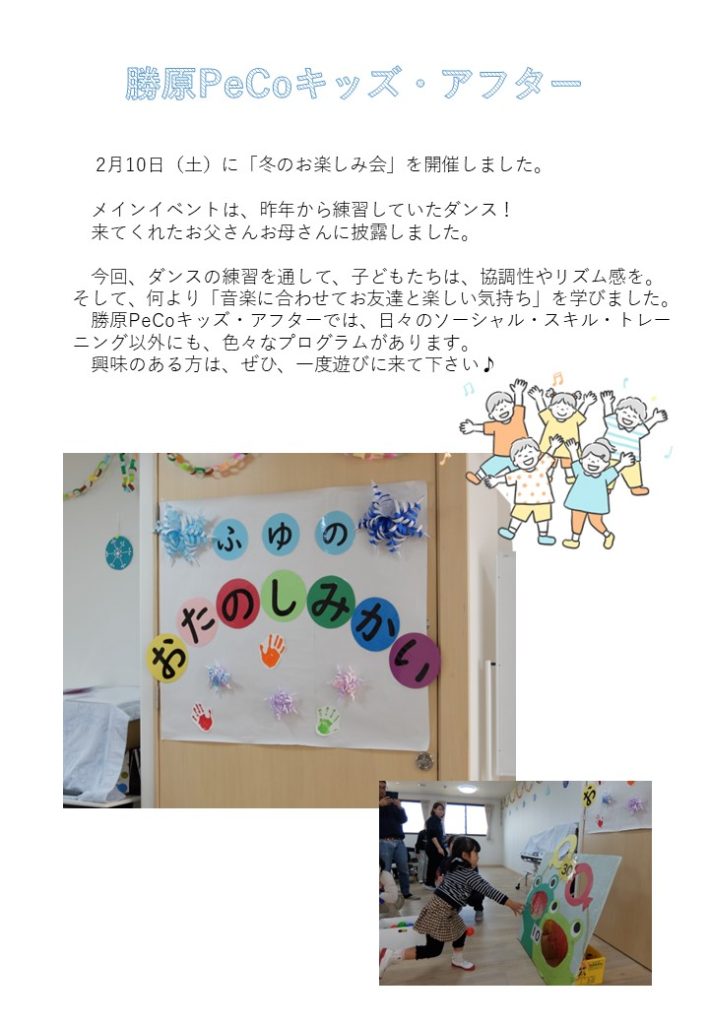 勝原PeCoキッズ・アフター
2月10日（土）に「冬のお楽しみ会」を開催しました。
メインイベントは、昨年から練習していたダンス！
来てくれたお父さんお母さんに披露しました。
今回、ダンスの練習を通して、子どもたちは、協調性やリズム感を。
そして、何より「音楽に合わせてお友達と楽しい気持ち」を学びました。
勝原PeCoキッズ・アフターでは、日々のソーシャル・スキル・トレー
ニング以外にも、色々なプログラムがあります。
興味のある方は、ぜひ、一度遊びに来て下さい♪
ふゆの
おたのしみかい
お
30
10